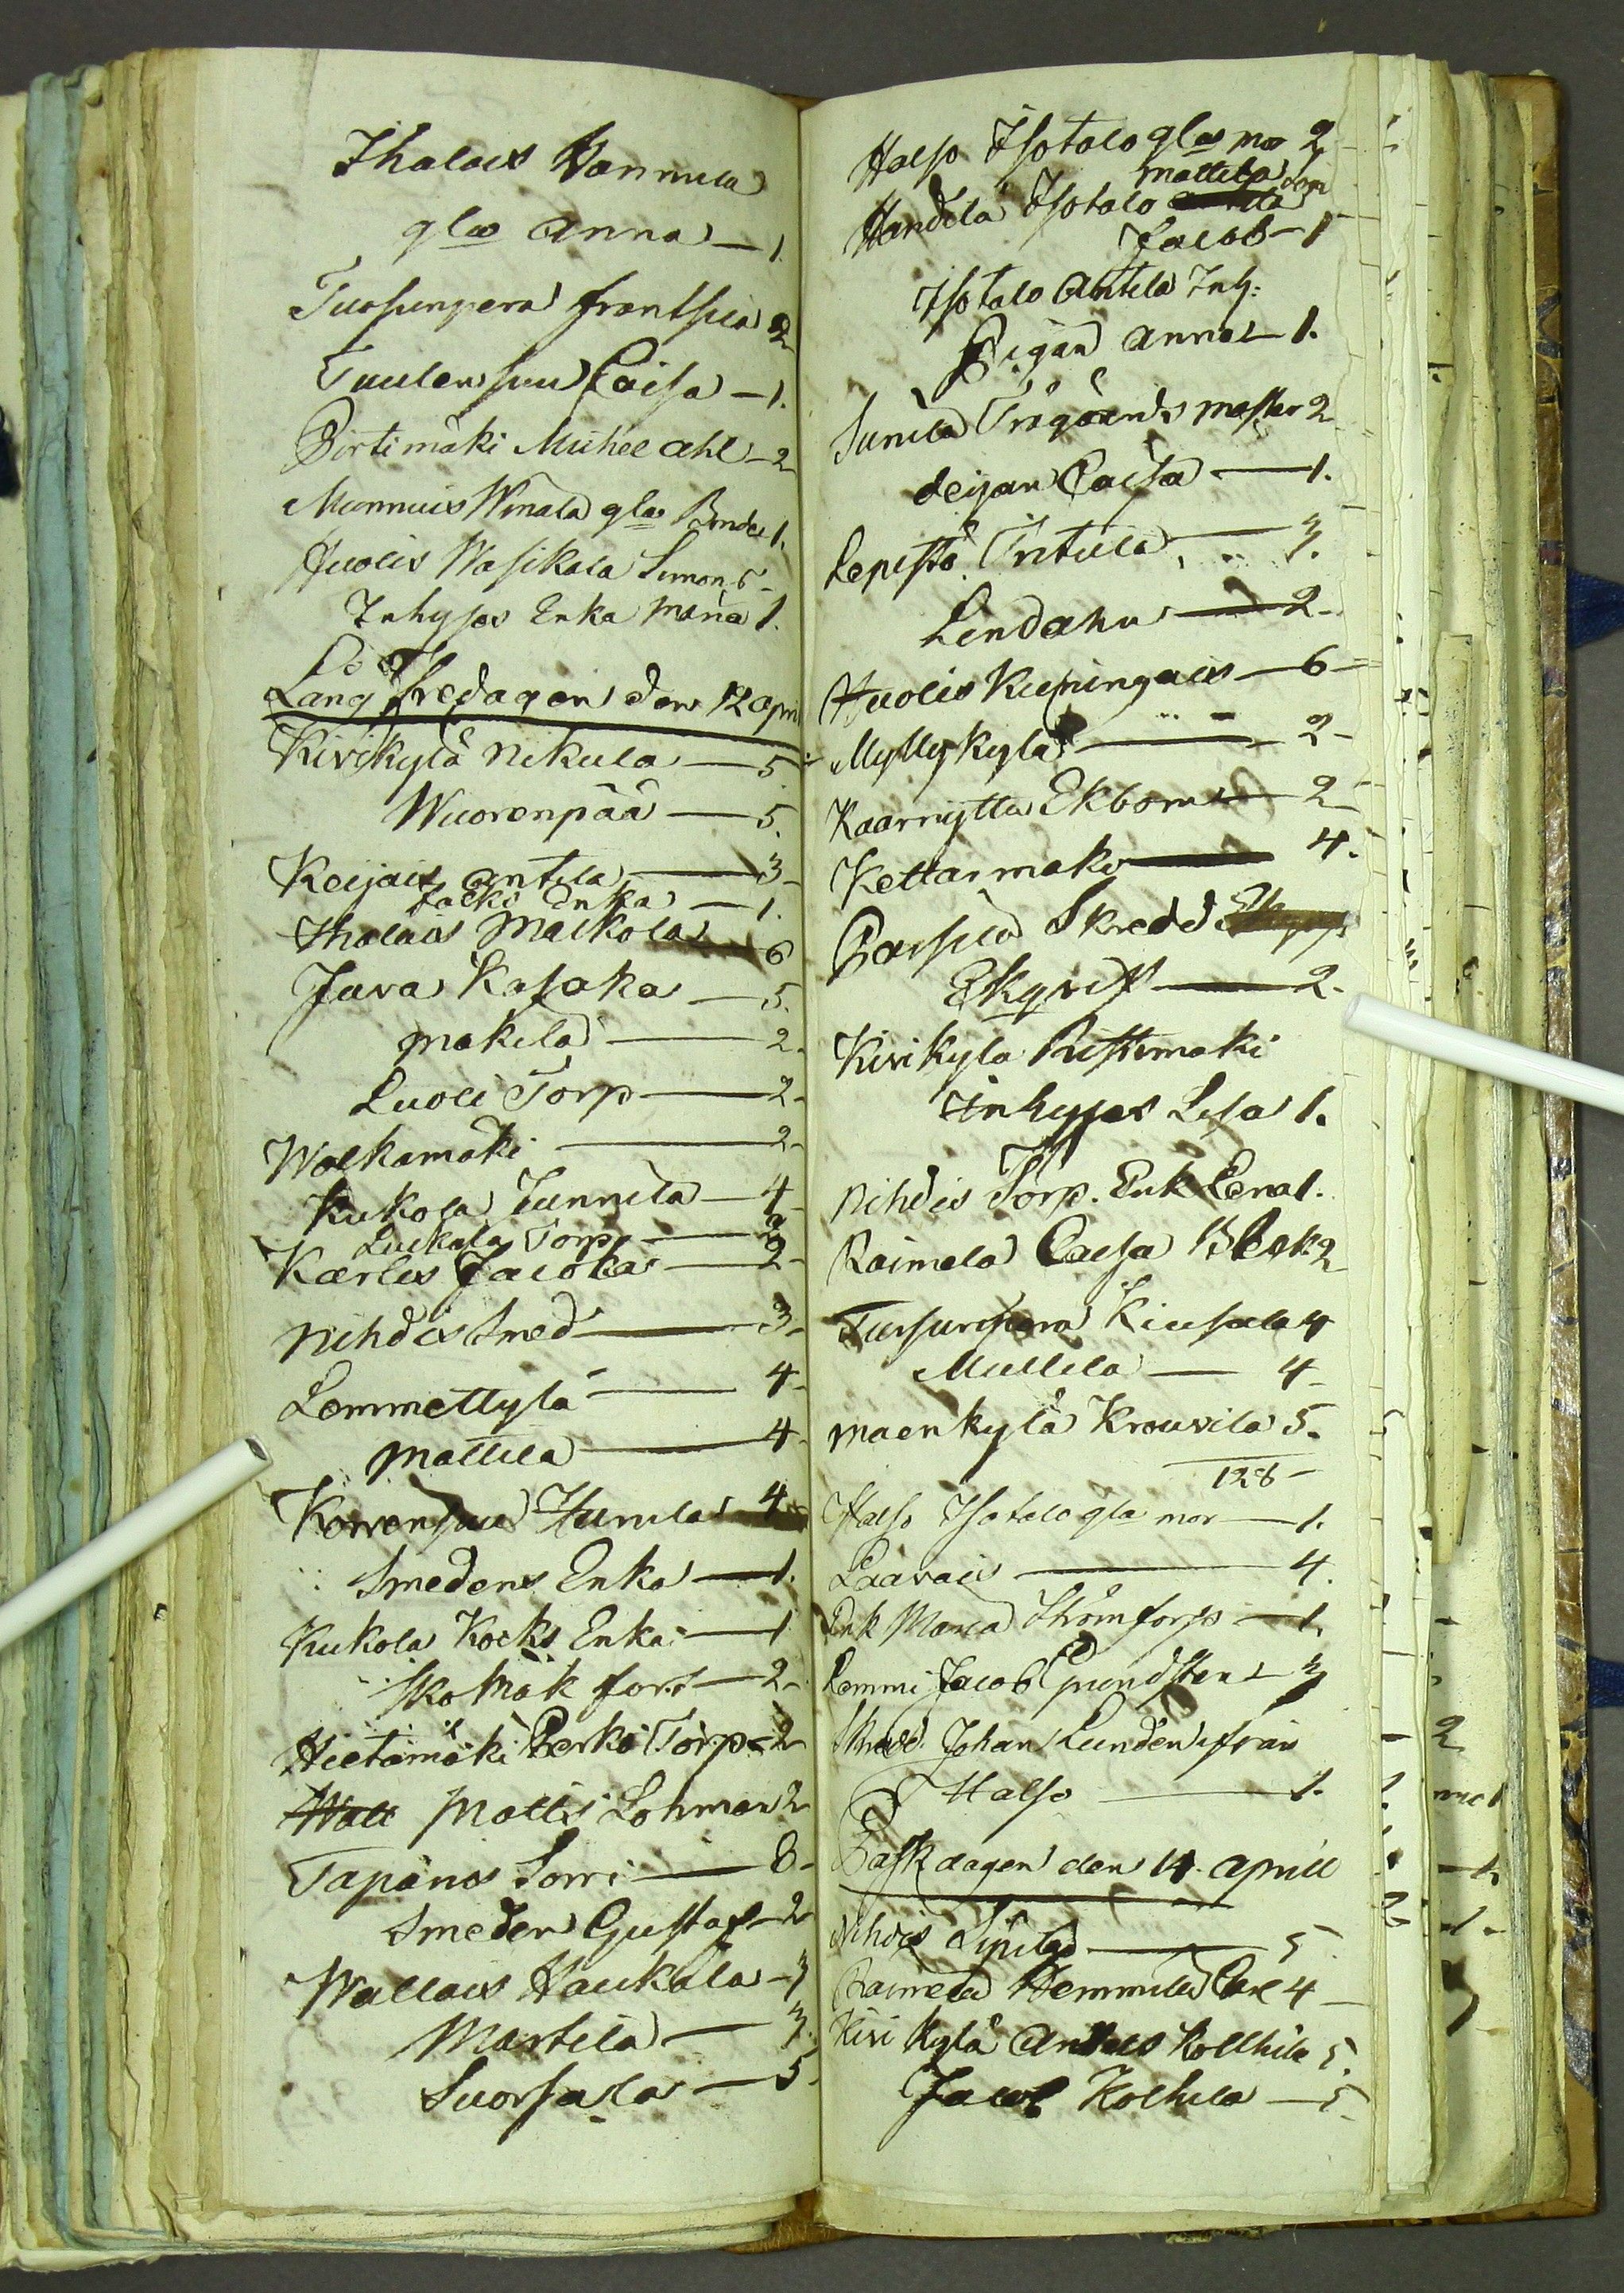 Ihalais Hannula
gla Anna — 1.
Tursunpera frantsila 2
Tuulensuu Caisa — 1.
Pirtimäki Mickel Ahl — 2
Munnuis Winala gla Bonde 1.
Huolis Wasikala Simon 5 -
Inhyses Enka Maria 1.
Lång fredagen den 12 april
Kivikylä Nikula — 5
Wuorenpää — 5.
Keijais Antila — 3 -
Jacks Enka — 1.
Ihalais Maikola — 6
Juva Kasaka — 5.
Makila — 2.
Luoli Torp — 2 -
Walkamaki — 2 -
Kukola Junnila — 4 -
Luckala Torp — 2
Karlis Jacoka — 2 -
Nihdis Smed — 3 -
Lemmettylä — 4 -
Mattila — 4 -
Korvensuu Hunila 4
Smedens Enka — 1.
Kukola Kocks Enka — 1
Sko Mak fors — 2 -
Hietamäki Perko Torp — 2
Wall Mattis Lohman 2
Tapanos Sorri — 8 -
Smeden Gustaf — 2
Wallais Haukala — 3
Martila — 3.
Suorsala — 5 -
Halso Isotalo gla mor 2
Mattila
Handila Isotalo
Jacob — 1
Isotalo Antila Inh:
Pigan Anna — 1.
Junila Trägårds mastar 2
deijan Caisa — 1.
Lepistö Öntila — 3.
Lendahn — 2 -
Huolis Kuningais — 6 -
Myllykylä — 2 -
Kaarnytta Ekbom — 2
Kettarmaki — 4.
Parsila Skredd
Ekqvist — 2.
Kivikyla Ristimaki
Inhyses Lisa 1.
Nihdis Torp. Enk Lena 1.
Raimela Caisa Blek 2
Tursunpera Kiusala 4
Mullila — 4 -
Maenkylä Krouvila 5.
128 -
Halso Isotalo gla mor — 1.
Laavais — 4.
Enk Maria Strömfors — 1.
Lemmi Jacob Grundsten — 3
Skredd. Johan Lunden ifrån
Halso — 1.
Påskdagen den 14. April
Nihdis Sipilä — 5
Raimela Hemmila Carl 4 -
Kivi Kylä Anders Kollhila 5.
Jacob Kolhila — 5 -